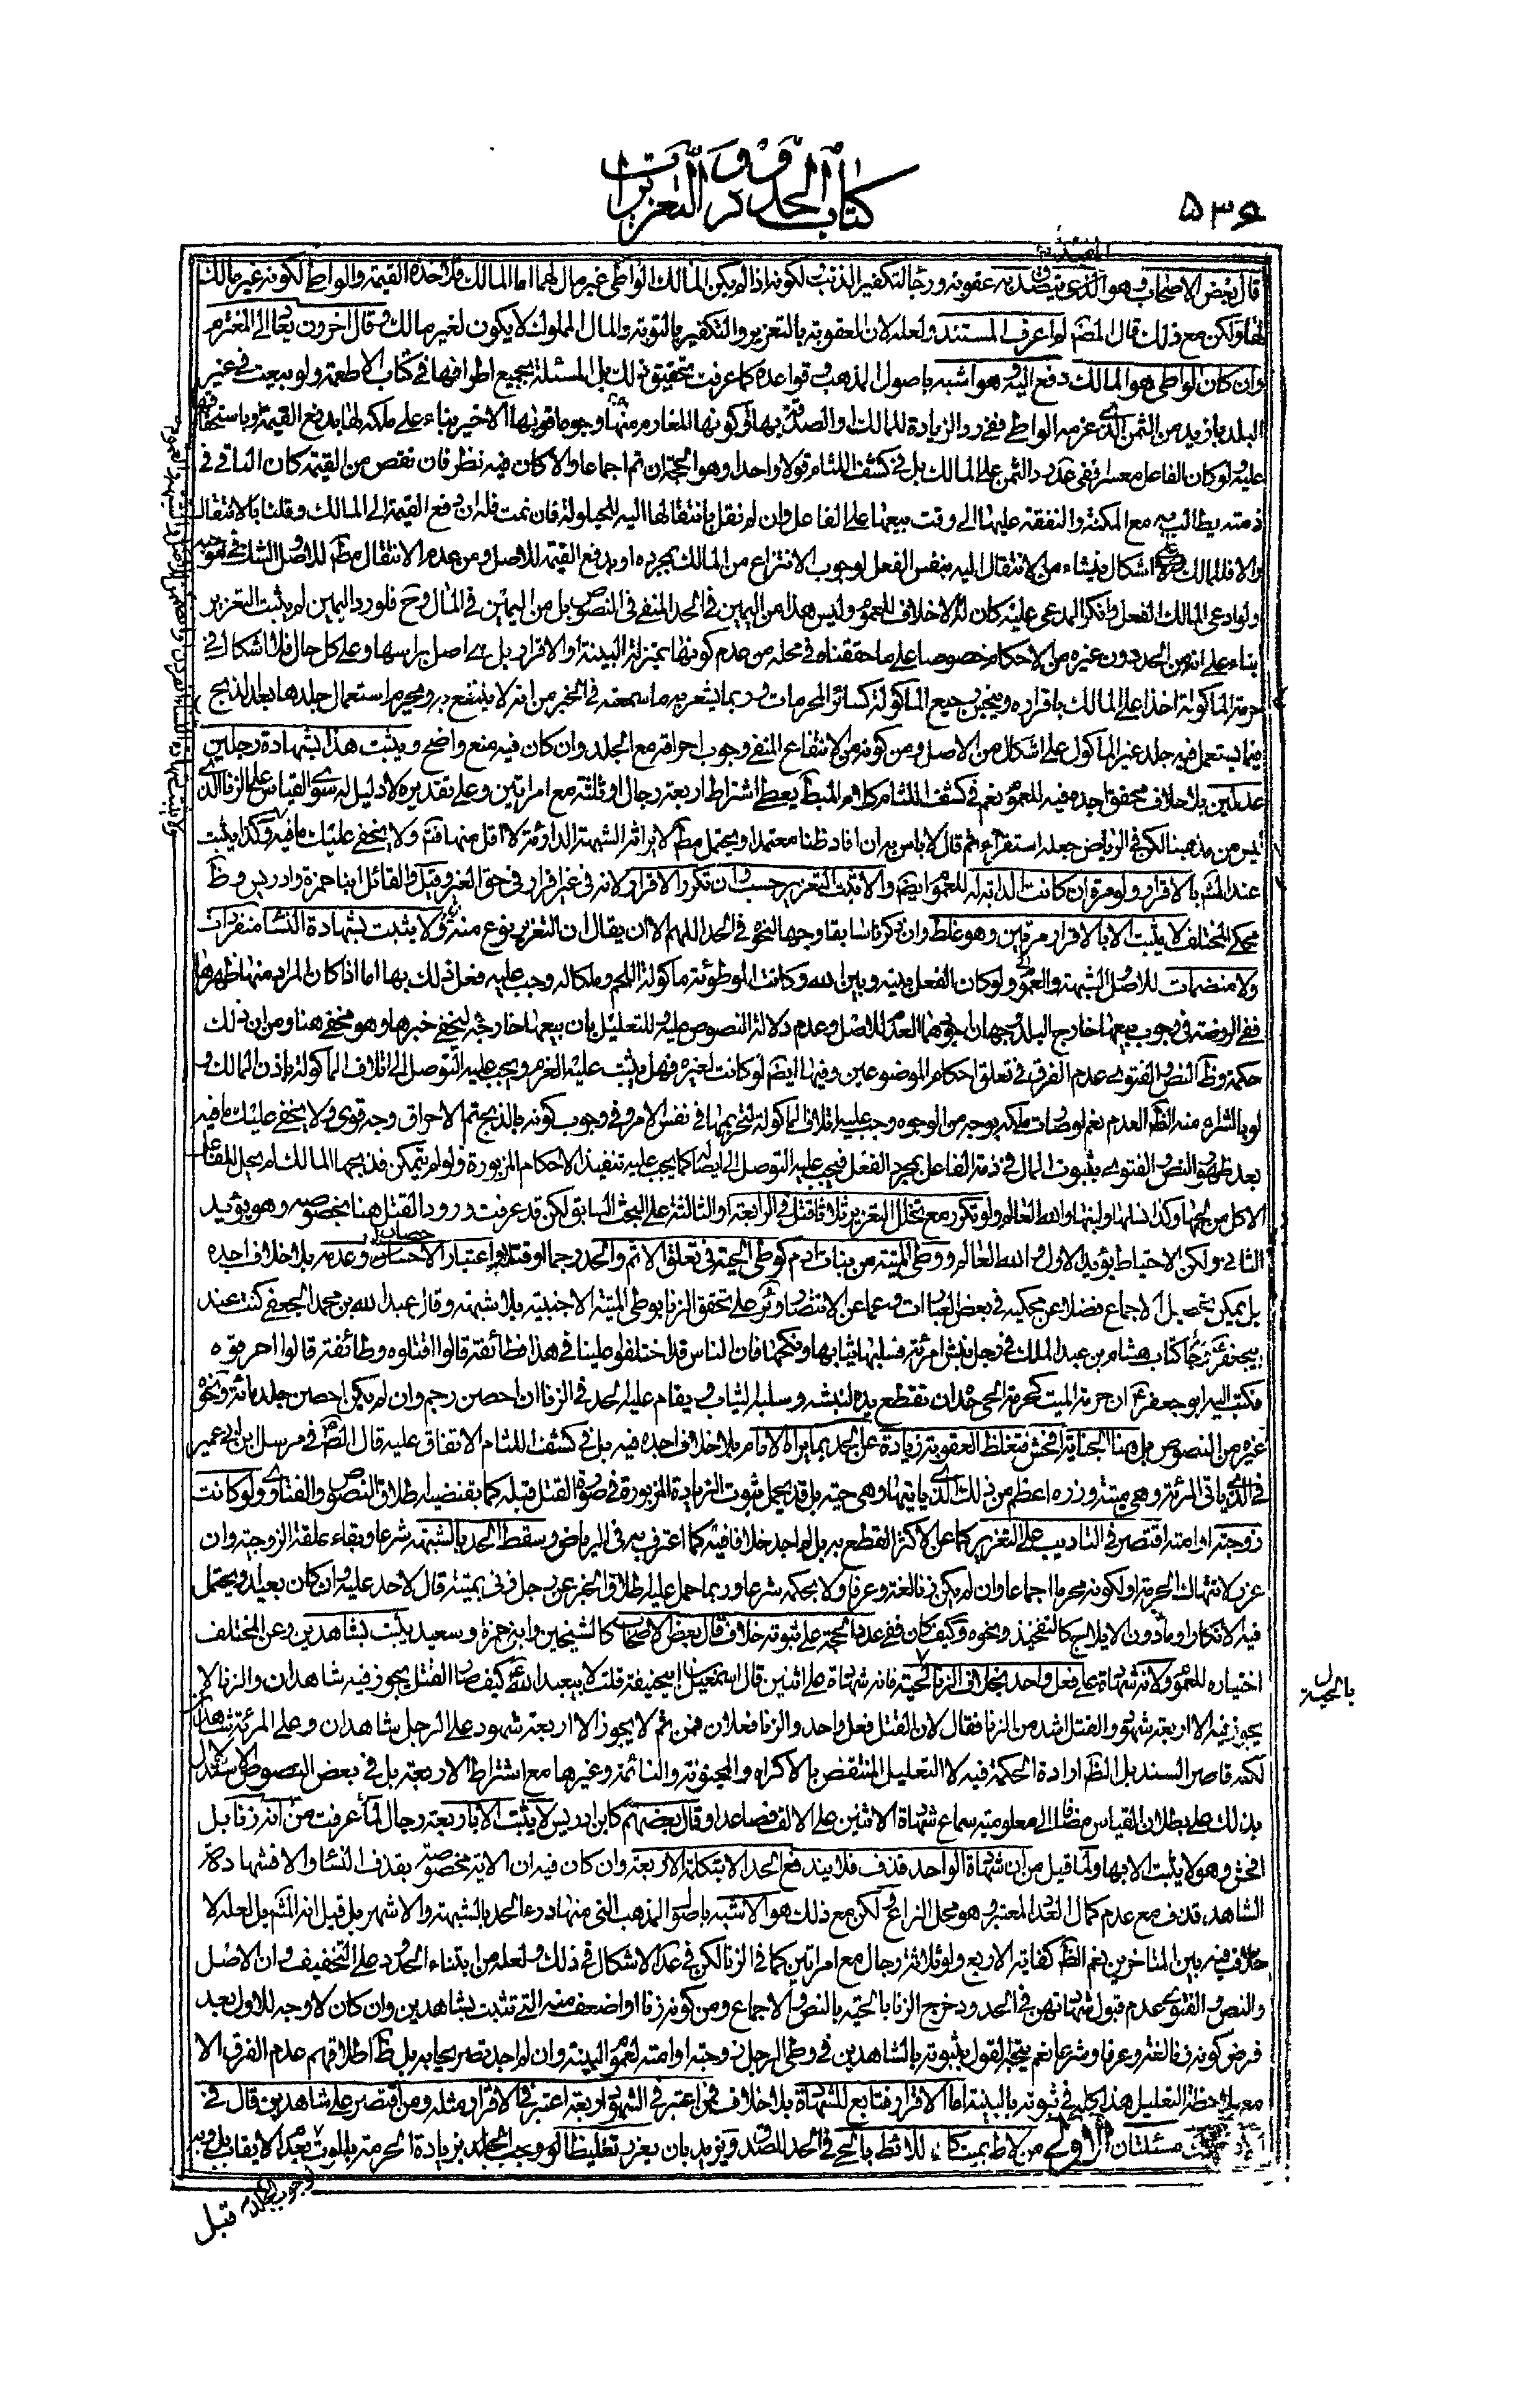 ۵۳۶
كتاب الحدود والتعزيرات
قال بعض الاصحاب وهو الذى يتصدق به عقوبة ورجاء لتكفير الذنب لكونه اذا لم يكن المالك الواطى غير مال لهما اما المالك فلاخذه القيمة والواطى لكونه غير مالك
لها ولكن مع ذلك قال المصنف لم اعرف المستند ولعله لان العقوبة بالتعزير والتكفير بالتوبة والمال المملوك لا يكون لغير مالك وقال اخرون يعاد الى المغترم
وان كان الواطى هو المالك دفع اليه وهو اشبه باصول المذهب وقواعده كما عرفت تحقيق ذلك بل المسئلة بجميع اطرافها فى كتاب الاطعمة ولو بيعت فى غير
البلد بازيد من الثمن الذى غرمه الواطى ففى رد الزيادة للمالك او الصدقة بها او كونها للغارم وجوه اقواها الاخير بناء على ملكه لها بدفع القيمة
عليه لو كان الفاعل معسرا ففى رد الثمن على المالك بل فى كشف اللثام قولا واحدا وهو الحجة ان تم اجماعا والا كان فيه نظر فان نقص من القيمة كان الباقى فى
ذمته يطالب به مع المكنة والنفقة عليها الى وقت بيعها على الفاعل وان لم نقل بانتقالها اليه للحيلولة فان نمت فله ان دفع القيمة الى المالك وقلنا بالانتقال
والا فللمالك اشكال ينشاء من الانتقال اليه بنفس الفعل لوجوب الانتزاع من المالك بمجرده او بدفع القيمة للاصل ومن عدم الانتقال مطلقا للاصل
ولو ادعى المالك الفعل وانكر المدعى عليه كان له الاحلاف للعموم وليس هذا من اليمين فى الحد المنفى فى النصوص بل من اليمين فى المال وح فلو رد اليمين لم يثبت التعزير
بناء على انه من الحد دون غيره من الاحكام خصوصا على ما حققناه فى محله من عدم كونها بمنزلة البينة او الاقرار بل هى اصل براسها وعلى كل حال فلا اشكال فى
حرمة الماكولة اخذا على المالك باقراره وينجس رجيع الماكولة كسائر المحرمات وربما يشعر به ما سمعته فى الخبر من انه لا ينتفع به ويحرم استعمال جلدها بعد الذبح
فيما يستعمل فيه جلد غير الماكول على اشكال من الاصل ومن كونه من الانتفاع المنفى ووجوب احراقه مع الجلد وان كان فيه منع واضح ويثبت هذا بشهادة رجلين
عدلين بلا خلاف محقق اجده فيه للعموم نعم فى كشف اللثام كلام المبسوط يعطى اشتراط اربعة رجال او ثلثة مع امراتين وعلى تقديره لا دليل له سوى القياس على الزنا الذى
ليس من مذهبنا لكن فى الرياض جعله استقراء ثم قال لا باس به ان افاد ظنا معتمدا ويحتمل مطلقا لايراثه الشبهة الدارئة لا اقل منها فتم ولا يخفى عليك ما فيه وكذا يثبت
عندنا بالاقرار ولو مرة ان كانت الدابة له للعموم ايضا والا ثبت التعزير حسب وان تكرر الاقرار لانه فى غيره اقرار فى حق الغير وقيل والقائل ابنا حمزة وادريس وظاهر
محكى المختلف لا يثبت الا بالاقرار مرتين وهو غلط وان ذكرنا سابقا وجها لنحوه فى الحد اللهم الا ان يقال ان التعزير نوع منه ولا يثبت بشهادة النساء منفردات
ولا منضمات للاصل والشبهة والعموم ولو كان الفعل بينه وبين الله وكانت الموطوئة ماكولة اللحم وملكا له وجب عليه فعل ذلك بها اما اذا كان المراد منها ظهرها
ففى الروضة فى وجوب بيعها خارج البلد وجهان اجودهما العدم للاصل وعدم دلالة النصوص عليه للتعليل بان بيعها خارجه ليخفى خبرها وهو مخفى هنا ومن ان ذلك
حكمة وظاهر النص والفتوى عدم الفرق فى تعلق احكام الموضوعين وفيها ايضا لو كانت لغيره فهل يثبت عليه الغرم ويجب عليه التوصل الى اتلاف الماكولة باذن المالك
لو بالشراء منه الظاهر العدم نعم لو صارت ملكه بوجه من الوجوه وجب عليه اتلاف الماكولة لتحريمها فى نفس الامر وفى وجوب كونه بالذبح ثم الاحراق وجه قوى ولا يخفى عليك ما فيه
بعد ظهور النص والفتوى بثبوت المال فى ذمة الفاعل بمجرد الفعل فيجب عليه التوصل الى ايصاله كما يجب عليه تنفيذ الاحكام المزبورة ولو لم يتمكن فذبحها المالك لم يحل للفاعل
الاكل من لحمها وكذا نسلها ولبنها والله العالم ولو تكرر مع تخلل التعزير ثلاثا قتل فى الرابعة او الثالثة على البحث السابق لكن قد عرفت ورود القتل هنا بخصوصه وهو يؤيد
الثانى ولكن الاحتياط يؤيد الاول والله العالم ووطى الميتة من بنات ادم كوطى الحية فى تعلق الاثم والحد رجما او قتلا واعتبار الاحصان وعدمه بلا خلاف اجده
بل يمكن تحصيل الاجماع فضلا عن محكيه فى بعض العبارات وعن الانتصار وئر على تحقق الزنا بوطى الميتة الاجنبية بلا شبهة وقال عبد الله بن محمد الجعفى كنت عند
ابيجعفر ع وجاءه كتاب هشام بن عبد الملك فى رجل نبش امرئة فسلبها ثيابها ونكحها فان الناس قد اختلفوا علينا فى هذا فطائفة قالوا اقتلوه وطائفة قالوا احرقوه
فكتب اليه ابو جعفر ع ان حرمة الميت كحرمة الحى حده ان تقطع يده لنبشه وسلبه الثياب ويقام عليه الحد فى الزنا ان احصن رجم وان لم يكن احصن جلد مائة ونحوه
غيره من النصوص بل هنا الجناية افحش فتغلظ العقوبة زيادة عن الحد بما يراه الامام بلا خلاف اجده فيه بل فى كشف اللثام الاتفاق عليه قال الص فى مرسل ابن ابى عمير
فى الذى ياتى المرئة وهى ميتة وزره اعظم من ذلك الذى ياتيها وهى حية بل قد يحتمل ثبوت الزيادة المزبورة فى صورة القتل قبله كما يقتضيه اطلاق النصوص والفتاوى ولو كانت
زوجته او امته اقتصر فى التاديب على التعزير كما عن الاكثر القطع به بل لم اجد خلافا فيه كما اعترف به فى الرياض وسقط الحد بالشبهة شرعا وبقاء علقة الزوجية وان
عزر لانتهاك الحرمة او لكونه محرما اجماعا وان لم يكن زنا لغة وعرفا ولا بحكمه شرعا وربما حمل عليه اطلاق الخبر عن رجل زنى بميتة قال لا حد عليه وان كان بعيدا ويحتمل
فيه الانكار او ما دون الايلاج كالتفخيذ ونحوه وكيف كان ففى عدد الحجة على ثبوته خلاف قال بعض الاصحاب كالشيخين وابنى حمزة وسعيد يثبت بشاهدين وعن المختلف
اختياره للعموم ولانه شهادة على فعل واحد بخلاف الزنا بالحية فانه شهادة على اثنين قال اسمعيل بن ابيحنيفة قلت لابيعبد الله ع كيف صار القتل يجوز فيه شاهدان والزنا لا
يجوز فيه الا اربعة شهود والقتل اشد من الزنا فقال لان القتل فعل واحد والزنا فعلان فمن ثم لا يجوز الا اربعة شهود على الرجل شاهدان وعلى المرئة شاهدان
لكنه قاصر السند بل الظاهر ارادة الحكمة فيه لا التعليل المنتقض بالاكراه والمجنونة والنائمة وغيرها مع اشتراط الاربعة بل فى بعض النصوص الاستدلال
بذلك على بطلان القياس مضافا الى معلومية سماع شهادة الاثنين على الالف فصاعدا وقال بعضهم كابن ادريس لا يثبت الا باربعة رجال لما عرفت من انه زنا بل
افحش وهو لا يثبت الا بها ولما قيل من ان شهادة الواحد قذف فلا يندفع الحد الا بتكملة الاربعة وان كان فيه ان الاية مخصوصة بقذف النساء والا فشهادة
الشاهد قذف مع عدم كمال العدد المعتبر وهو محل النزاع لكن مع ذلك هو الاشبه باصول المذهب التى منها درء الحد بالشبهة والاشهر بل قيل انه المشهور بل لعله لا
خلاف فيه بين المتاخرين نعم الظاهر كفاية الاربع ولو ثلاثة رجال مع امراتين كما فى الزنا لكن فى عد الاشكال فى ذلك ولعله من ابتناء الحدود على التخفيف وان الاصل
والنص والفتوى عدم قبول شهادتهن فى الحدود خرج الزنا بالحية بالنص والاجماع ومن كونه زنا او اضعف منه التى تثبت بشاهدين وان كان لا وجه للاول بعد
فرض كونه زنا لغة وعرفا وشرعا نعم يتجه القول بثبوته بالشاهدين فى وطى الرجل زوجته او امته لعموم البينة وان لم اجد تصريحا به بل ظاهر اطلاقهم عدم الفرق الا
مع ملاحظة التعليل هذا كله فى ثبوته بالبينة اما الاقرار فتابع للشهادة بلا خلاف فمن اعتبر فى الشهود اربعة اعتبر فى الاقرار مثله ومن اقتصر على شاهدين قال فى
مسئلتان الاولى من لاط بميت كان كاللائط بالحى فى الحد للصدق ويزيد بان يعزر تغليظا لو وجب الجلد بزيادة الحرمة بالموت بعد الايقاب بل وبه
بالحية ل
قبل